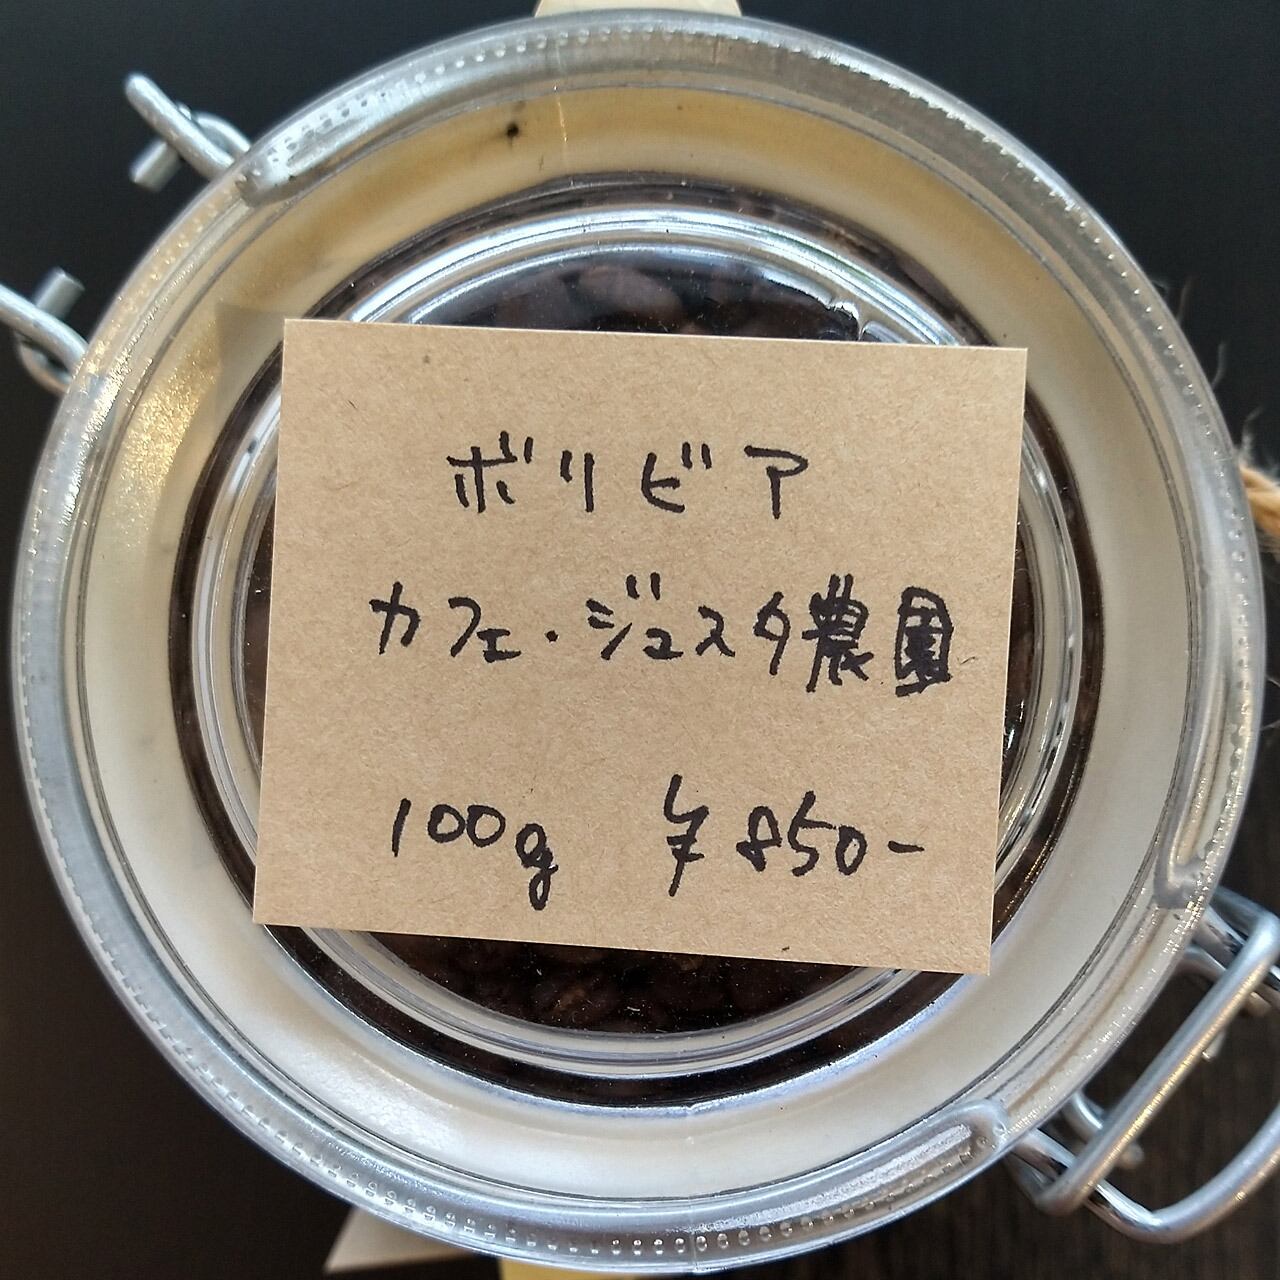 ボリビア
カフェ・ジュスタ農園
100g ¥850-